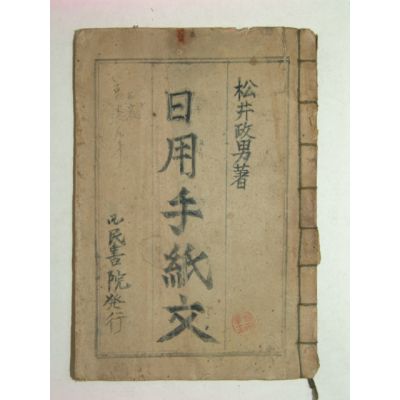 松井政男著
日用手紙文
民書院発行